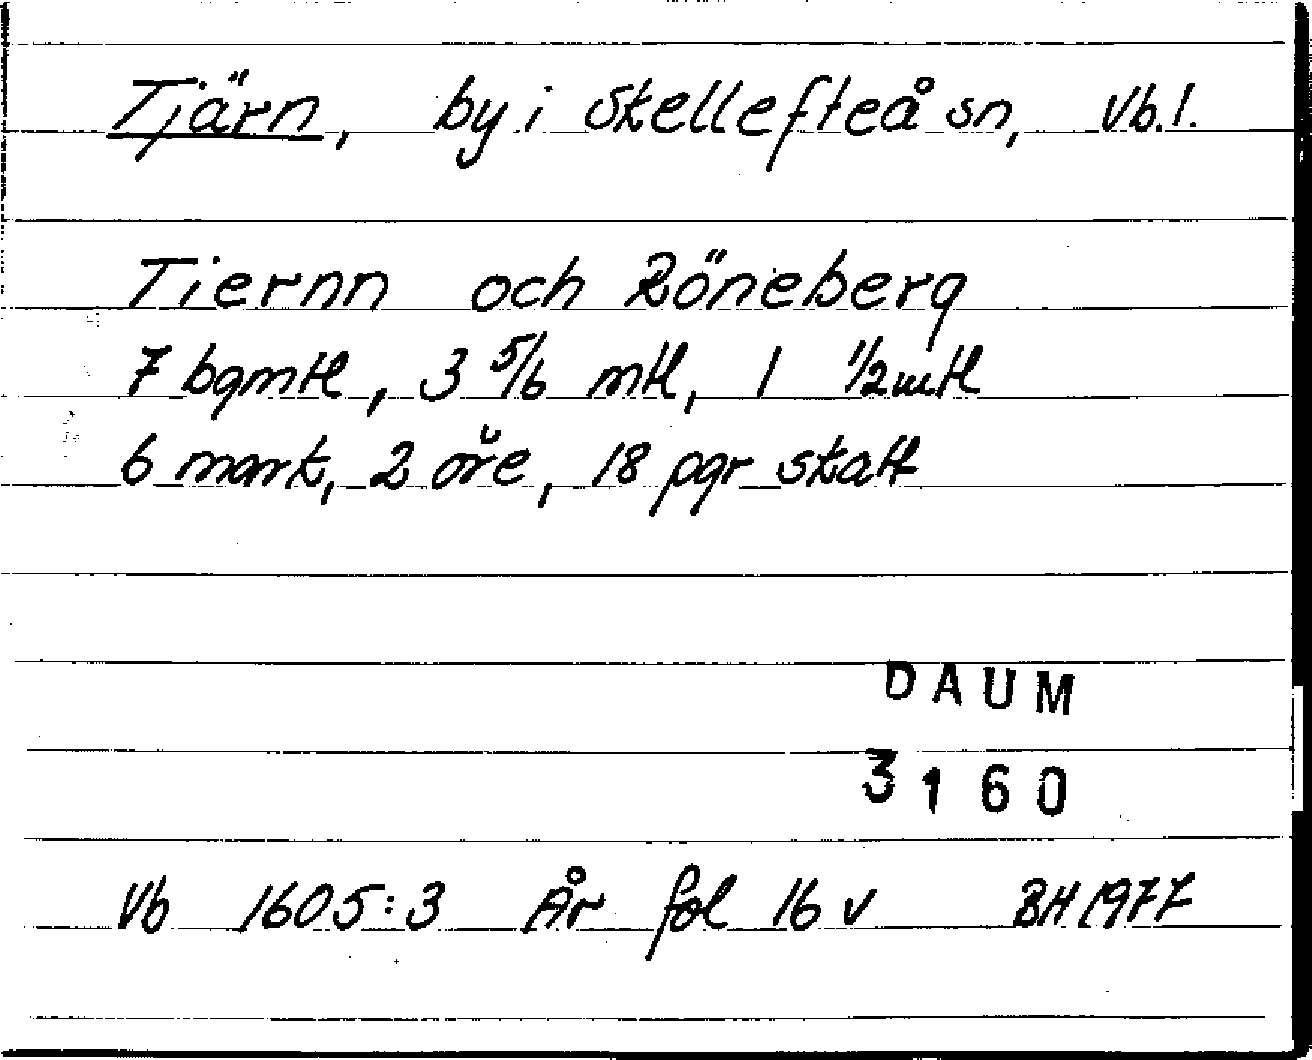 Tjärn, by i Skellefteå sn, Vb.l.
Tiernn och Röneberg
7 bgmtl, 3 5/6 mtl, 1 1/2 mtl
6 mark, 2 öre, 18 pgr skatt
DAUM
3160
Vb 1605:3 År fol 16 v BH 1977